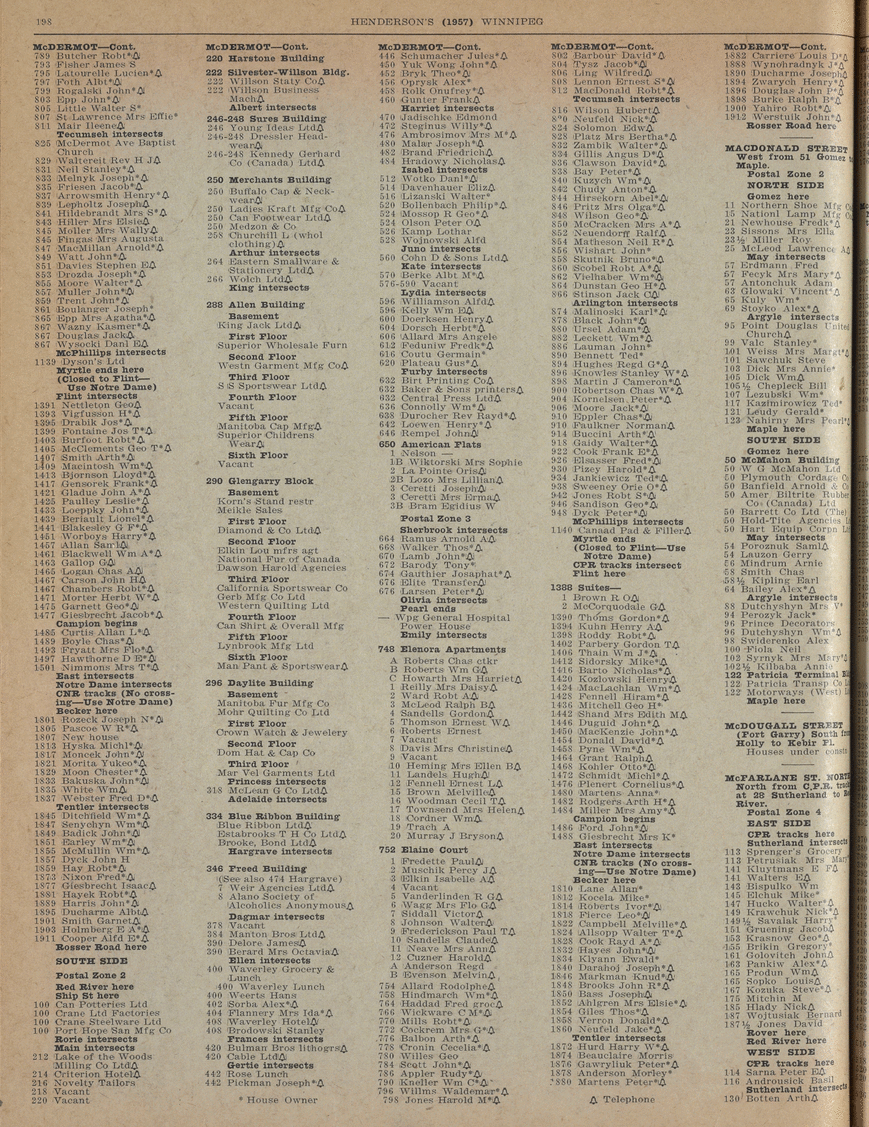 198
HENDERSON'S (1957) WINNIPEG
McDERMOT—Cont.
789 Butcher Robt*△
793 Fisher James S
795 Latourelle Lucien*△
797 Foth Albt*△
799 Rogalski John*△
803 Epp John*△
805 Little Walter S*
807 St Lawrence Mrs Effie*
811 Mair Ileene△
Tecumseh intersects
825 McDermot Ave Baptist
Church
829 Waltereit Rev H J△
831 Neil Stanley*△
833 Melnyk Joseph*△
835 Friesen Jacob*△
837 Arrowsmith Henry*△
839 Lepholtz Joseph△
841 Hildebrandt Mrs S*△
843 Hiller Mrs Elsie△
845 Moller Mrs Wally△
845 Fingas Mrs Augusta
847 MacMillan Arnold*△
849 Watt John*△
851 Davies Stephen E△
853 Drozda Joseph*△
855 Moore Walter*△
857 Muller John*△
859 Trent John*△
861 Boulanger Joseph*
865 Epp Mrs Agatha*△
867 Wazny Kasmer*△
867 Douglas Jack△
867 Wysocki Danl E△
McPhillips intersects
1139 Dyson's Ltd
Myrtle ends here
(Closed to Flint—
Use Notre Dame)
Flint intersects
1391 Nettleton Geo△
1393 Vigfusson H*△
1395 Drabik Jos*△
1399 Fontaine Jos T*△
1403 Burfoot Robt*△
1405 McClements Geo T*△
1407 Smith Arth*△
1409 Macintosh Wm*△
1413 Bjornson Lloyd*△
1417 Gensorek Frank*△
1421 Gladue John A*△
1425 Paulley Leslie*△
1433 Loeppky John*△
1439 Beriault Lionel*△
1441 Blakesley G P*△
1451 Worboys Harry*△
1457 Allan Sarah△
1461 Blackwell Wm A*△
1463 Gallop G△
1465 Logan Chas A△
1467 Carson John H△
1467 Chambers Robt*△
1471 Morter Herbt W*△
1475 Garnett Geo*△
1477 Giesbrecht Jacob*△
Campion begins
1485 Curtis Allan L*△
1489 Boyle Chas*△
1493 Fryatt Mrs Flo*△
1497 Hawthorne D E*△
1501 Nimmons Mrs T*△
East intersects
Notre Dame intersects
CNR tracks (No cross-
ing—Use Notre Dame)
Becker here
1801 Rozeck Joseph N*△
1805 Pascoe W R*△
1807 New house
1813 Hyska Michl*△
1817 Moncek John*△
1821 Morita Yukeo*△
1829 Moon Chester*△
1833 Bakuska John*△
1835 White Wm△
1837 Webster Fred D*△
Tentler intersects
1845 Ditchfield Wm*△
1847 Senychyn Wm*△
1849 Badick John*△
1851 Earley Wm*△
1855 McMullin Wm*△
1857 Dyck John H
1859 Hay Robt*△
1873 Nixon Fred*△
1877 Giesbrecht Isaac△
1881 Hayek Robt*△
1889 Harris John*△
1895 Ducharme Albt△
1901 Smith Garnet△
1903 Holmberg E A*△
1911 Cooper Alfd E*△
Rosser Road here
SOUTH SIDE
Postal Zone 2
Red River here
Ship St here
100 Can Potteries Ltd
100 Crane Ltd Factories
100 Crane Steelware Ltd
100 Port Hope San Mfg Co
Rorie intersects
Main intersects
212 Lake of the Woods
Milling Co Ltd△
214 Criterion Hotel△
216 Novelty Tailors
218 Vacant
220 Vacant
McDERMOT—Cont.
220 Harstone Building
222 Silvester-Willson Bldg.
222 Willson Staty Co△
222 Willson Business
Mach△
Albert intersects
246-248 Sures Building
246 Young Ideas Ltd△
246-248 Dressler Head-
wear△
246-248 Kennedy Gerhard
Co (Canada) Ltd△
250 Merchants Building
250 Buffalo Cap & Neck-
wear△
250 Ladies Kraft Mfg Co△
250 Can Footwear Ltd△
250 Medzon & Co
258 Churchill L (whol
clothing)△
Arthur intersects
264 Eastern Smallware &
Stationery Ltd△
266 Wolch Ltd△
King intersects
288 Allen Building
Basement
King Jack Ltd△
First Floor
Superior Wholesale Furn
Second Floor
Westn Garment Mfg Co△
Third Floor
S S Sportswear Ltd△
Fourth Floor
Vacant
Fifth Floor
Manitoba Cap Mfg△
Superior Childrens
Wear△
Sixth Floor
Vacant
290 Glengarry Block
Basement
Korn's Stand restr
Meikle Sales
First Floor
Diamond & Co Ltd△
Second Floor
Elkin Lou mfrs agt
National Fur of Canada
Dawson Harold Agencies
Third Floor
California Sportswear Co
Gerb Mfg Co Ltd
Western Quilting Ltd
Fourth Floor
Can Shirt & Overall Mfg
Fifth Floor
Lynbrook Mfg Ltd
Sixth Floor
Man Pant & Sportswear△
296 Daylite Building
Basement
Manitoba Fur Mfg Co
Mohr Quilting Co Ltd
First Floor
Crown Watch & Jewelery
Second Floor
Dom Hat & Cap Co
Third Floor
Mar Vel Garments Ltd
Princess intersects
318 McLean G Co Ltd△
Adelaide intersects
334 Blue Ribbon Building
Blue Ribbon Ltd△
Estabrooks T H Co Ltd△
Brooke, Bond Ltd△
Hargrave intersects
346 Freed Building
(See also 474 Hargrave)
7 Weir Agencies Ltd△
8 Alano Society of
Alcoholics Anonymous△
Dagmar intersects
378 Vacant
384 Manton Bros Ltd△
390 Delore James△
390 Berard Mrs Octavia△
Ellen intersects
400 Waverley Grocery &
Lunch
400 Waverley Lunch
400 Weerts Hans
402 Sorba Alex*△
404 Flannery Mrs Ida*△
408 Waverley Hotel△
408 Brodowski Stanley
Frances intersects
420 Bulman Bros lithogrs△
420 Cable Ltd△
Gertie intersects
442 Rose Lunch
442 Pickman Joseph*△
* House Owner
McDERMOT—Cont.
446 Schumacher Jules*△
450 Yuk Wong John*△
452 Bryk Theo*△
456 Oprysk Alex*
458 Rolk Onufrey*△
460 Gunter Frank△
Harriet intersects
470 Jadischke Edmond
472 Steginus Willy*△
476 Ambrosimov Mrs M*△
480 Malar Joseph*△
482 Brand Friedrich△
484 Hradowy Nicholas△
Isabel intersects
512 Wotko Danl*△
514 Davenhauer Eliz△
516 Lizanski Walter*
520 Bollenbach Philip*△
524 Mossop R Geo*△
524 Olson Peter O△
526 Kamp Lothar
528 Wojnowski Alfd
Juno intersects
560 Cohn D & Sons Ltd△
Kate intersects
570 Berke Albt M*△
576-590 Vacant
Lydia intersects
596 Williamson Alfd△
596 Kelly Wm E△
600 Doerksen Henry△
604 Dorsch Herbt*△
606 Allard Mrs Angele
612 Feduniw Fredk*△
616 Coutu Germain*
620 Plateau Gus*△
Furby intersects
632 Birt Printing Co△
632 Baker & Sons printers△
632 Central Press Ltd△
636 Connolly Wm*△
638 Durocher Rev Rayd*△
642 Loewen Henry*△
646 Rempel John△
650 American Flats
1 Nelson —
1B Wiktorski Mrs Sophie
2 La Pointe Oris△
2B Lozo Mrs Lillian△
3 Ceretti Joseph△
3 Ceretti Mrs Erma△
3B Bram Egidius W
Postal Zone 3
Sherbrook intersects
664 Ramus Arnold A△
668 Walker Thos*△
670 Lamb John*△
672 Barody Tony*
674 Gauthier Josaphat*△
676 Elite Transfer△
676 Larsen Peter*△
Olivia intersects
Pearl ends
— Wpg General Hospital
Power House
Emily intersects
748 Elenora Apartments
A Roberts Chas clkr
B Roberts Wm G△
C Howarth Mrs Harriet△
1 Reilly Mrs Daisy△
2 Ward Robt A△
3 McLeod Ralph B△
4 Sandells Gordon△
5 Thomson Ernest W△
6 Roberts Ernest
7 Vacant
8 Davis Mrs Christine△
9 Vacant
10 Heming Mrs Ellen B△
11 Landels Hugh△
12 Fennell Ernest L△
15 Brown Melville△
16 Woodman Cecil T△
17 Townsend Mrs Helen△
18 Cordner Wm△
19 Trach A
20 Murray J Bryson△
752 Elaine Court
1 Fredette Paul△
2 Muschik Percy J△
3 Elkin Isabelle A△
4 Vacant
5 Vanderlinden R G△
6 Wagg Mrs Flo G△
7 Siddall Victor△
8 Johnson Walter△
9 Frederickson Paul T△
10 Sandells Claude△
11 Neave Mrs Ann△
12 Cuzner Harold△
A Anderson Regd
B Evenson Melvin△
754 Allard Rodolphe△
758 Hindmarch Wm*△
764 Haddad Fred groc△
766 Wickware C M*△
770 Mills Robt*△
772 Cockrem Mrs G*△
776 Balbon Arth*△
778 Cronin Cecelia*△
780 Willes Geo
784 Scott John*△
786 Appler Rudy*△
790 Kneller Wm C*△
796 Willms Waldemar*△
798 Jones Harold M*△
McDERMOT—Cont.
802 Barbour David*△
804 Tysz Jacob*△
806 Ling Wilfred△
808 Lennon Ernest S*△
812 MacDonald Robt*△
Tecumseh intersects
816 Wilson Hubert△
820 Neufeld Nick*△
824 Solomon Edw△
828 Platz Mrs Bertha*△
832 Zambik Walter*△
834 Gillis Angus D*△
836 Clawson David*△
838 Bay Peter*△
840 Kuzych Wm*△
842 Chudy Anton*△
844 Hirsekorn Abel*△
846 Fritz Mrs Olga*△
848 Wilson Geo*△
850 McCracken Mrs A*△
852 Neuendorff Ralf△
854 Matheson Neil R*△
856 Wishart John*
858 Skutnik Bruno*△
860 Scobel Robt A*△
862 Vielhaber Wm*△
864 Dunstan Geo H*△
866 Stinson Jack C△
Arlington intersects
874 Malinoski Karl*△
878 Black John*△
880 Ursel Adam*△
882 Leckett Wm*△
886 Lauman John*
890 Bennett Ted*
894 Hughes Regd G*△
896 Knowles Stanley W*△
898 Martin J Cameron*△
900 Robertson Chas W*△
904 Kornelsen Peter*△
906 Moore Jack*△
910 Eppler Chas*△
910 Faulkner Norman△
914 Buccini Arth*△
918 Gaidy Walter*△
922 Cook Frank E*△
926 Elsasser Fred*△
930 Pizey Harold*△
934 Jankiewicz Ted*△
938 Sweeney Orie O*△
942 Jones Robt S*△
946 Sandison Geo*△
948 Dyck Peter*△
McPhillips intersects
1140 Canaad Pad & Filler△
Myrtle ends
(Closed to Flint—Use
Notre Dame)
CPR tracks intersect
Flint here
1388 Suites—
1 Brown R O△
2 McCorquodale G△
1390 Thoms Gordon*△
1394 Kuhn Henry A△
1398 Roddy Robt*△
1402 Parbery Gordon T△
1406 Thain Wm J*△
1412 Sidorsky Mike*△
1416 Barto Nicholas*△
1420 Kozlowski Henry△
1424 MacLachlan Wm*△
1428 Fennell Hiram*△
1436 Mitchell Geo H*
1442 Shand Mrs Edith M△
1446 Duguid John*△
1450 MacKenzie John*△
1454 Donald David*△
1458 Pyne Wm*△
1464 Grant Ralph△
1468 Kohler Otto*△
1472 Schmidt Michl*△
1476 Plenert Cornelius*△
1480 Martens Anna*
1482 Rodgers Arth H*△
1484 Miller Mrs Amy*△
Campion begins
1486 Ford John*△
1488 Giesbrecht Mrs K*
East intersects
Notre Dame intersects
CNR tracks (No cross-
ing—Use Notre Dame)
Becker here
1810 Lane Allan*
1812 Kocela Mike*
1814 Roberts Ivor*△
1818 Fierce Leo*△
1822 Campbell Melville*△
1824 Allsopp Walter T*△
1828 Cook Rayd A*△
1832 Hayes John*△
1834 Klyann Ewald*
1840 Darahoj Joseph*△
1846 Markman Knud*△
1848 Brooks John R*△
1850 Bass Joseph△
1852 Ahlgren Mrs Elsie*△
1854 Giles Thos*△
1858 Verron Donald*△
1860 Neufeld Jake*△
Tentler intersects
1872 Hurd Harry W*△
1874 Beauclaire Morris
1876 Gawryliuk Peter*△
1878 Anderson Morley*
1880 Martens Peter*△
△ Telephone
McDERMOT—Cont.
1882 Carriere Louis D*△
1888 Wynohradnyk J*△
1890 Ducharme Joseph△
1894 Zwarych Henry*△
1896 Douglas John P*△
1898 Burke Ralph B*△
1900 Yahiro Robt*△
1912 Werstuik John*△
Rosser Road here
MACDONALD STREET
West from 51 Gomez to
Maple.
Postal Zone 2
NORTH SIDE
Gomez here
11 Northern Shoe Mfg Co
15 Nationl Lamp Mfg Co
21 Newhouse Fredk*△
23 Sissons Mrs Ella
23½ Miller Roy
25 McLeod Lawrence A△
May intersects
57 Erdmann Fred
57 Fecyk Mrs Mary*△
57 Antonchuk Adam
63 Glowaki Vincent*△
65 Kuly Wm*
69 Stoyko Alex*△
Argyle intersects
95 Point Douglas United
Church△
99 Valc Stanley*
101 Weiss Mrs Margt*△
101 Sawchuk Steve
103 Dick Mrs Annie*
105 Dick Wm△
105½ Chepleck Bill
107 Lezubski Wm*
117 Kazimirowicz Ted*
121 Leudy Gerald*
123 Nahirny Mrs Pearl*△
Maple here
SOUTH SIDE
Gomez here
50 McMahon Building
50 W G McMahon Ltd
50 Plymouth Cordage Co
50 Banfield Arnold & Co
50 Amer Biltrite Rubber
Co (Canada) Ltd
50 Barrett Co Ltd (The)
50 Hold-Tite Agencies
50 Hart Equip Corpn
May intersects
54 Poroznuk Saml△
54 Lauzon Gerry
56 Mindrum Arnie
58 Smith Chas
58½ Kipling Earl
64 Bailey Alex*△
Argyle intersects
88 Dutchyshn Mrs V*
94 Perozyk Jack*
96 Prince Decorators
96 Dutchyshyn Wm*△
98 Swiderenko Alex
100 Fiola Neil
102 Synyk Mrs Mary*△
102½ Kilbaba Annie
122 Patricia Terminal
122 Patricia Transp Co
122 Motorways (West)
Maple here
McDOUGALL STREET
(Fort Garry) South from
Holly to Kebir Pl.
Houses under const
McFARLANE ST. NORTH
North from C.P.R. track
at 28 Sutherland to Red
River.
Postal Zone 4
EAST SIDE
CPR tracks here
Sutherland intersects
113 Sprenger's Grocery
113 Petrusiak Mrs Mary
141 Kluytmans E F△
141 Walters E△
143 Bispulko Wm
145 Elchuk Mike*
147 Hucko Walter*
149 Krawchuk Nick*△
149½ Savalak Harry
151 Gruening Jacob
153 Krasnow Geo*△
155 Brikin Gregory*
161 Golovitch John
163 Pankiw Alex*△
165 Produn Wm△
165 Sopko Louis△
167 Kozuka Steve*△
175 Mitchin M
185 Hlady Nick△
187 Wojtusiak Bernard
187½ Jones David
Rover here
Red River here
WEST SIDE
CPR tracks here
114 Sarna Peter E△
116 Androusick Basil
Sutherland intersects
130 Botten Arth△